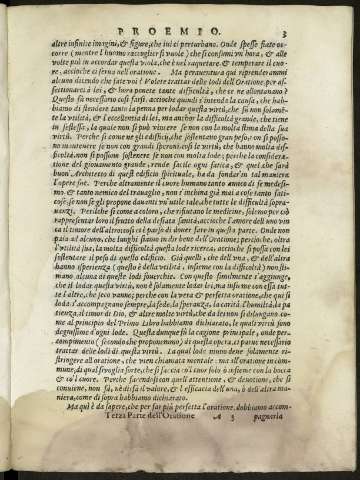 PROEMIO. 3
altre infinite imagini, & figure, che iui ci perturbano. Onde spesso fiate occorre
( mentre l'huomo raccoglier si vuole ) che si consumi vn hora, & alle
volte più in accordar questa viola, che è nel raquetare, & temperare il cuore,
accioche ci serua nell'oratione. Ma perauentura qui riprenderà mi
alcuno dicendo che fate voi? Volete trattare delle lodi dell'Oratione, per affettionarci
à lei, & hora ponete tante difficultà, che ce ne allontanano?
Questo sù necessario così farsi, accioche quando s'intenda la causa, che habbiamo
di stendere tanto la penna per lodar questa virtù, che sù non solamẽte
la vtilità, & l'eccellentia di lei, ma anchor la difficultà grande, che tiene
in sestesso, la quale non si può vincere se non con la molta stima della sua
virtù. Perche sì come ne gli edificij, che sostentano gran peso, non si possono
mantenere se non con grandi speroni; così le virtù, che hanno molta difficultà,
non si possono sostenere se non con molte lodi; perche la consideratione
del giouamento grande, rende facile ogni fatica, & quel, che sarà
buon' Architetto di quest' edificio spirituale, ha da fondar' in tal maniera
l'opera sua. Perche altramente il cuore humano tanto amico di se medesimo,
& tanto nemico del trauaglio, non s'inchina già mai a cose tanto faticose,
se non se gli propone dauanti vn' vtile tale, che tutte le difficultà soprauanzi.
Perilche sì come a coloro, che rifiutano le medicine, sogliono per cõforto
rappresentar loro il frutto della desiata sanità, accioche l'amore dell' vno vinca
il timore dell'altro; così ci è parso di douer fare in questa parte. Onde non
paia ad alcuno, che lunghi siamo in dir bene dell'Oratione; perciò che, oltra
l'vtilità sua, la molta difficultà questa lode ricerca, accioche si possa con lei
sostentare il peso di questo edificio. Già quelli, che dell'vna, & dell'altra
hanno esperienza (questo è della vtilità, insieme con la difficultà) non stimano
alcuna di queste lodi souerchie. Con questo similmente s'aggiunge,
che il lodar questa virtù, non è solamente lodar lei, ma insieme con essa tutte
l'altre, che seco vanno; perche con la vera & perfetta oratione, che qui si
loda s'accompagnano sempre, la fede, la speranza, la carità, l'humiltà, la patienza,
il timor di Dio, & altre molte virtù, che da lei non si disgiungono come
al principio del Primo Libro habbiamo dichiarato, le quali virtù sono
degnissime d'ogni lode. Questa dunque sù la cagione principale, onde per
compimento ( secondo che proponemmo) di questa opera, ci parue necessario
trattar delle lodi di questa virtù. La qual lode manco deue solamente ristringere
all'oratione, che vien chiamata mentale; ma all'oratione in commune,
di qual si voglia sorte, che si faccia col'l cuor solo ò insieme con la bocca
& co'l cuore. Perche facendosi con quell' attentione, & deuotione, che si
conuiene, non fà, nè disfà il valore, & l'efficacia dell'vna, ò dell'altra maniera,
come di sopra habbiamo dichiarato.
Ma quì è da sapere, che per far più perfetta l'oratione, dobbiamo accom-
Terza Parte dell'Oratione A 3 pagnerla